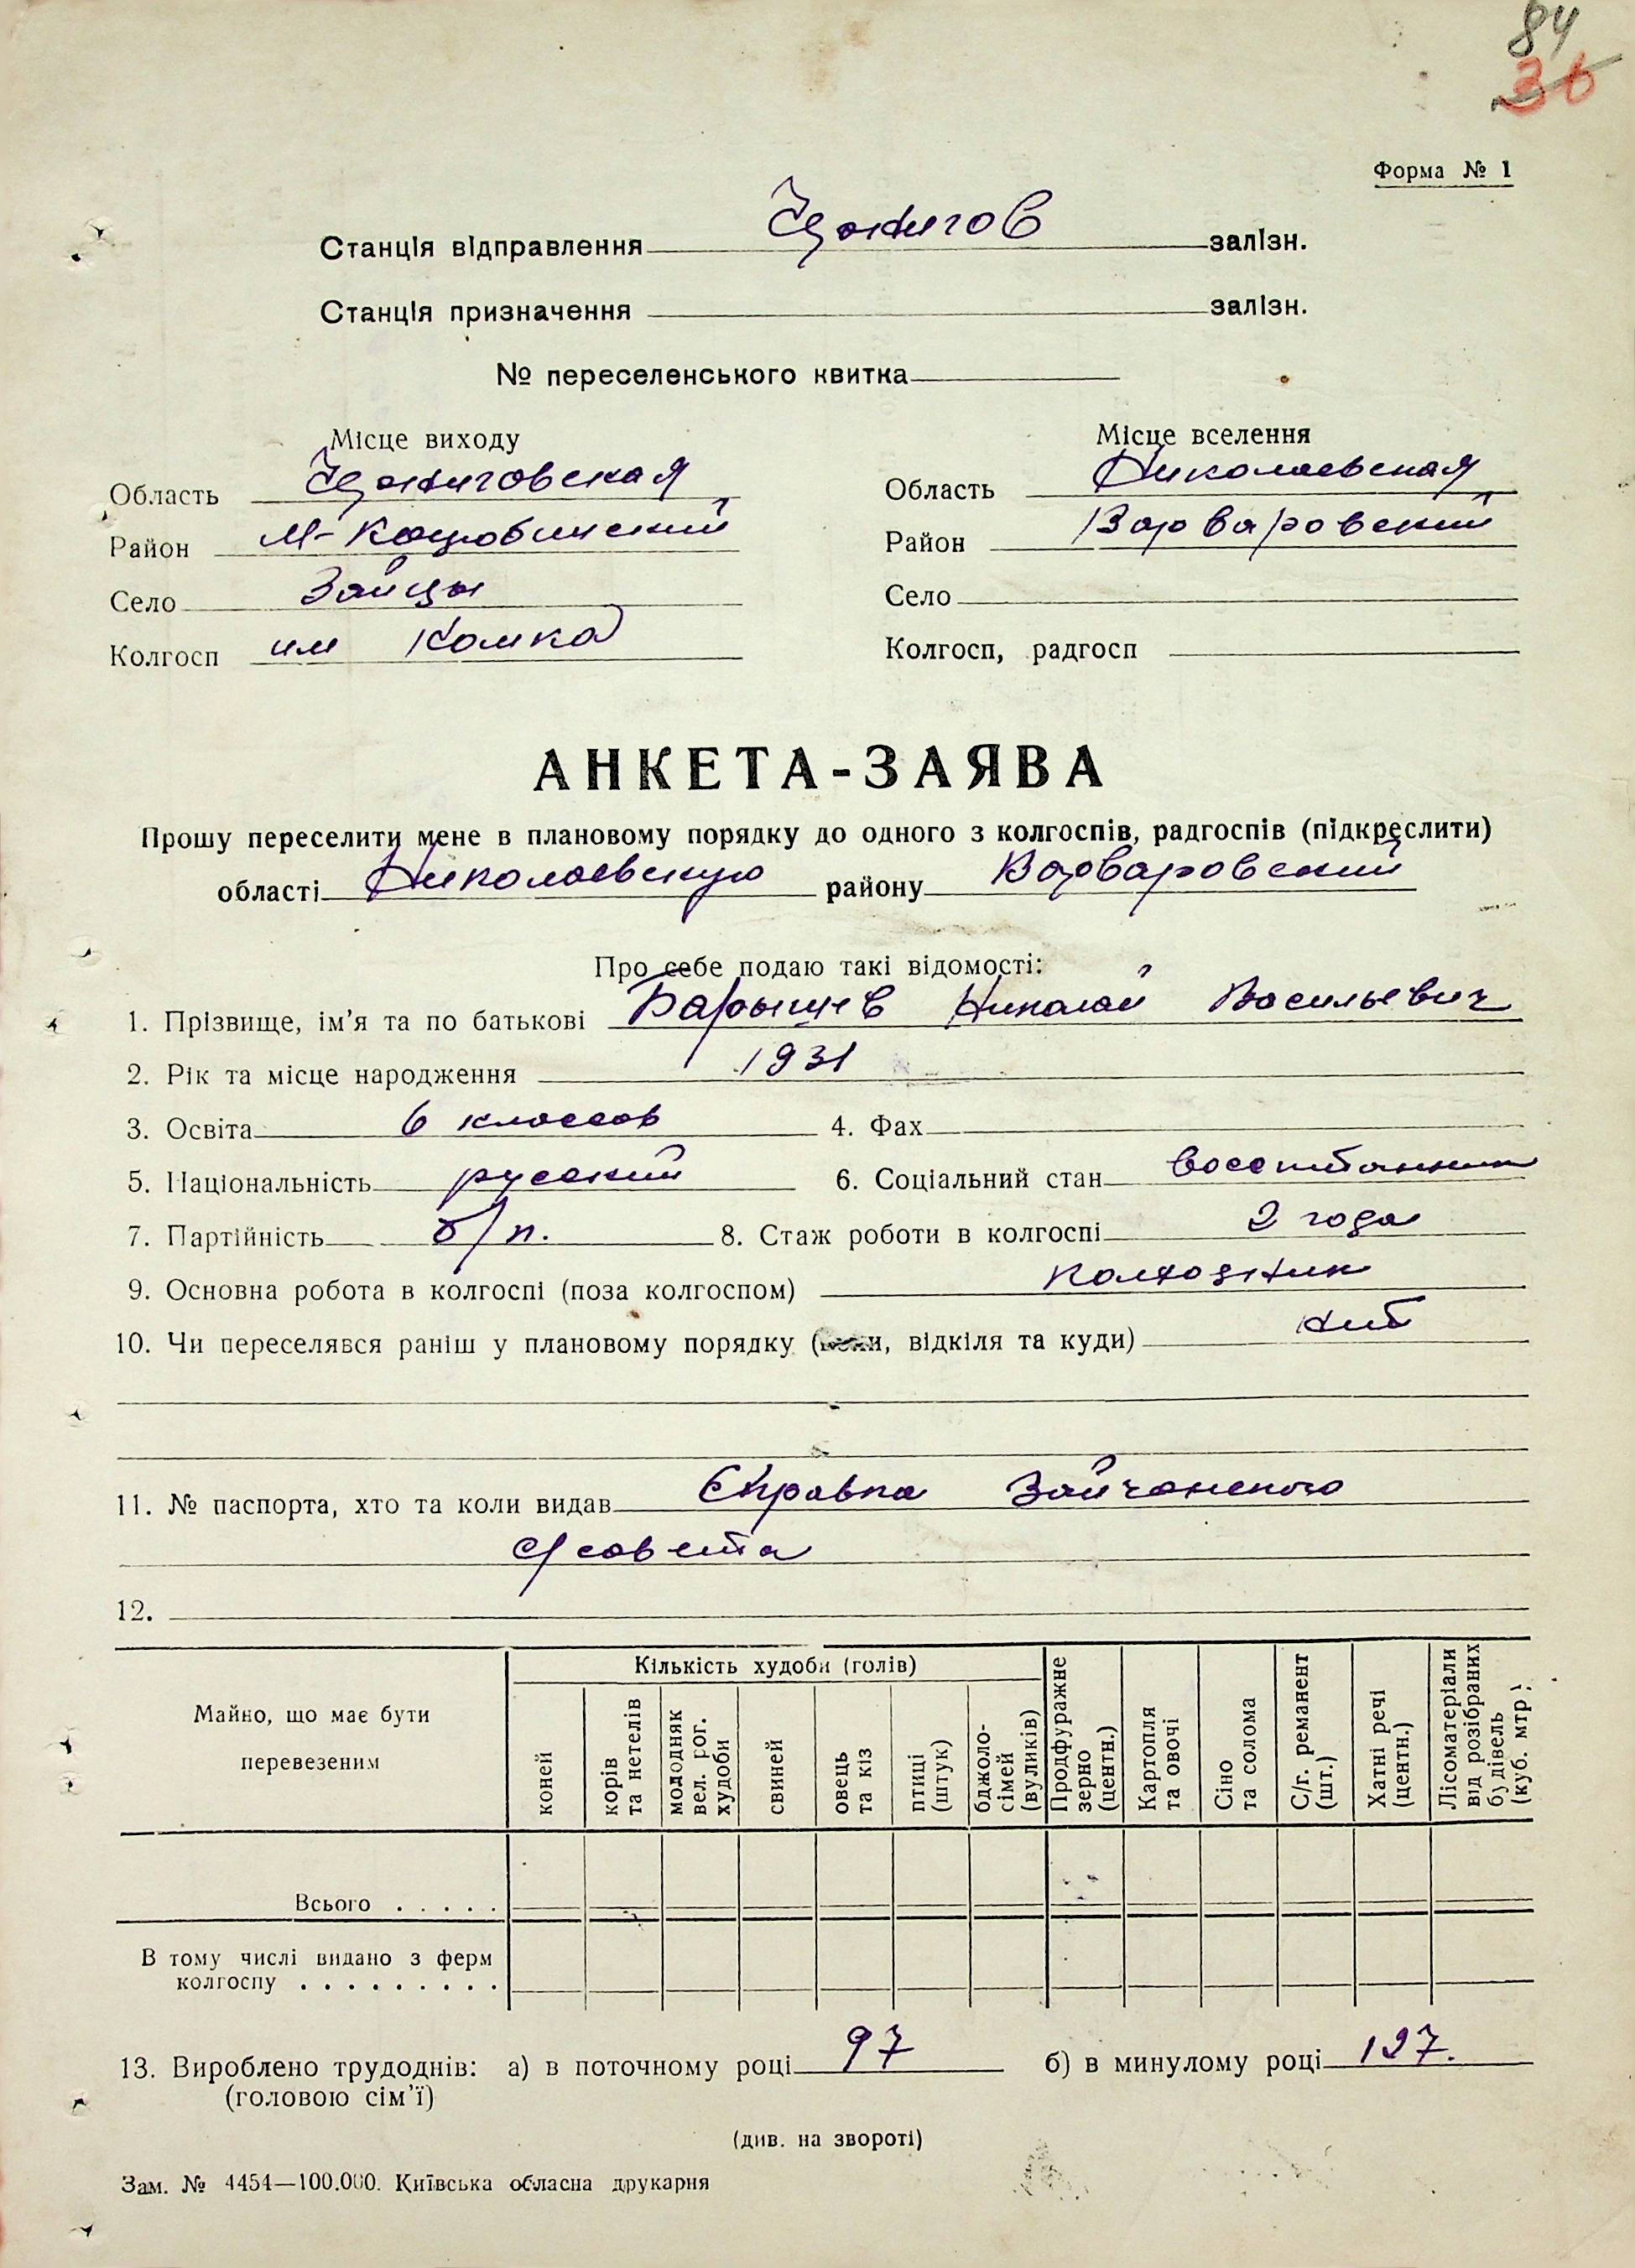 84
36
Форма № 1
Станція відправлення Чернигов залізн.
Станція призначення залізн.
№ переселенського квитка
Місце виходу
Область Черниговская
Район М-Коцюбинский
Село Зайцы
Колгосп им
Місце вселення
Область Николаевская
Район Варваровский
Село
Колгосп, радгосп
АНКЕТА-ЗАЯВА
Прошу переселити мене в плановому порядку до одного з колгоспів, радгоспів (підкреслити)
області Николаевскую району Варваровский
Про себе подаю такі відомості:
1. Прізвище, ім'я та по батькові Барышев Николай Васильевич
2. Рік та місце народження 1931
3. Освіта 6 классов 4. Фах
5. Національність русский 6. Соціальний стан
7. Партійність б/п. 8. Стаж роботи в колгоспі 2 года
9. Основна робота в колгоспі (поза колгоспом) колхозник
10. Чи переселявся раніш у плановому порядку (коли, відкіля та куди) нет
11. № паспорта, хто та коли видав Справка Зайчанского
с/совета
12.
Майно, що має бути перевезеним
Кількість худоби (голів)
коней
корів та нетелів
молодняк вел. рог. худоби
свиней
овець та кіз
птиці (штук)
бджоло-сімей (вуликів)
Продфуражне зерно (центн.)
Картопля та овочі
Сіно та солома
С/г. реманент (шт.)
Хатні речі (центн.)
Лісоматеріали від розібраних будівель (куб. мтр)
Всього . . . . .
В тому числі видано з ферм
колгоспу . . . . . . . . .
13. Вироблено трудоднів: а) в поточному році 97 б) в минулому році 127.
(головою сім'ї)
(див. на звороті)
Зам. № 4454—100.000. Київська обласна друкарня